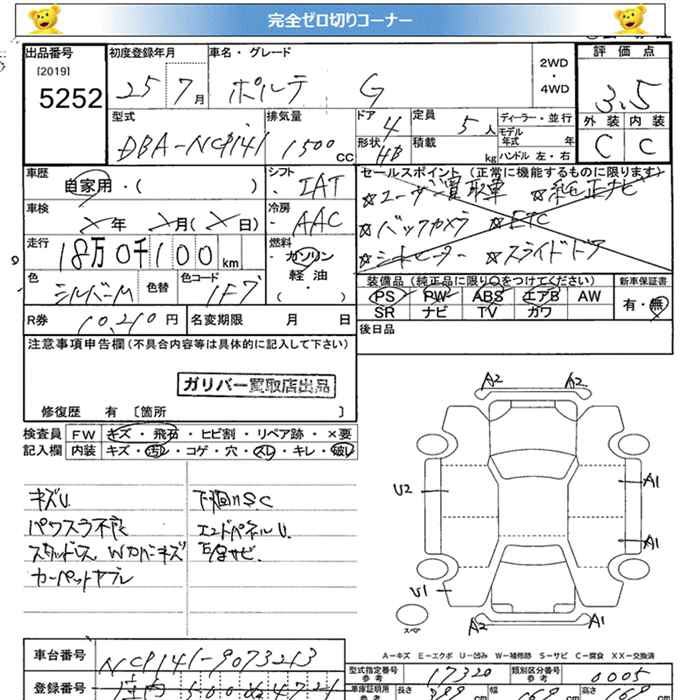 完全ゼロ切りコーナー
出品番号 初度登録年月 車名・グレード 評価点
[2019] 2WD・4WD
5252 25年7月 ポルテ G 3.5
型式 排気量 ドア 4 定員 5人 ディーラー・並行 外装 内装
DBA-NCP141 1500cc 形状 HB 積載 kg モデル年式 年 C C
ハンドル 左・右
車歴 自家用・( ) シフト IAT セールスポイント (正常に機能するものに限ります)
☆ユーザー買取車 ☆純正ナビ
車検 ×年×月(×日) 冷房 AAC ☆バックカメラ ☆ETC
走行 18万0千100km 燃料 ガソリン・軽油・( ) ☆シートヒーター ☆スライドドア
色 シルバーM 色替 色コード 1F7 装備品 (純正品に限り○をつけてください) 新車保証書
PS PW ABS エアB AW 有・無
SR ナビ TV カワ
R券 10,210円 名変期限 月 日 後日品
注意事項申告欄(不具合内容等は具体的に記入して下さい)
ガリバー買取店出品
修復歴 有 〔箇所 〕
検査員 FW キズ・飛石・ヒビ割・リペア跡・×要
記入欄 内装 キズ・汚れ・コゲ・穴・スレ・キレ・破レ
キズU 下廻りS.C
パワスラ不良 エンドパネルU
スタッドレス Wカバーキズ
カーペットヤブレ
A2 A2
U2 A1
A1
U1
スペア A2 A1
A-キズ E-エクボ U-凹み W-補修跡 S-サビ C-腐食 XX-交換済
車台番号 NCP141-9073213 型式指定番号 参考 17320 類別区分番号 参考 0005
登録番号 車庫証明用 参考 長さ 幅 高さ